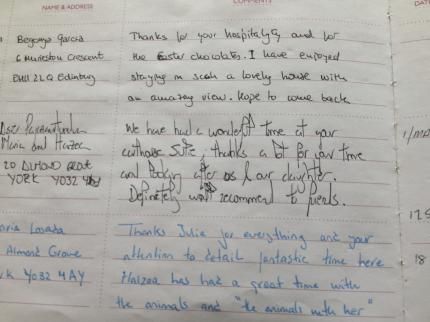 NAME & ADDRESS
COMMENTS
DATE
Begonya Garcia
6 Murieston Crescent
EH11 2LQ Edinburg
Thanks for your hospitality and for
the Easter chocolates. I have enjoyed
staying in such a lovely house with
an amazing view. Hope to come back
Maria and
20
YORK YO32
We have had a wonderful time at your
Suite, thanks a lot for your time
and looking after us & our daughter.
Definitely will recommend to friends.
Losada
Almond Grove
YO32 4AY
Thanks Julie for everything and your
attention to detail fantastic time here
has had a great time with
the animals and "the animals with her"
18